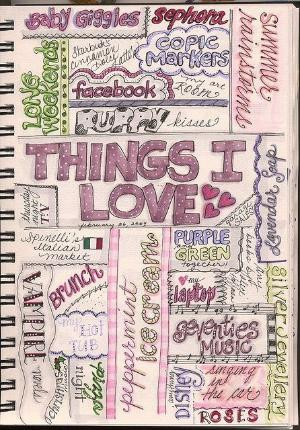 Baby Giggles
Sephora
Summer
rainstorms
Long
weekends
Starbuck's
cinnamon
dolce latte
Copic
Markers
facebook
my art
Room
Puppy
kisses
THINGS I
LOVE
february 26, 2009
Lavender Soap
T.V.
Spinelli's
italian
market
PURPLE
GREEN
together
Brunch
VAMPIRE
my
HOT
TUB
peppermint
ice cream
my
laptop
Silver Jewellery
Seventies
MUSIC
night
Christmas
Disney
singing
in
the car
ROSES